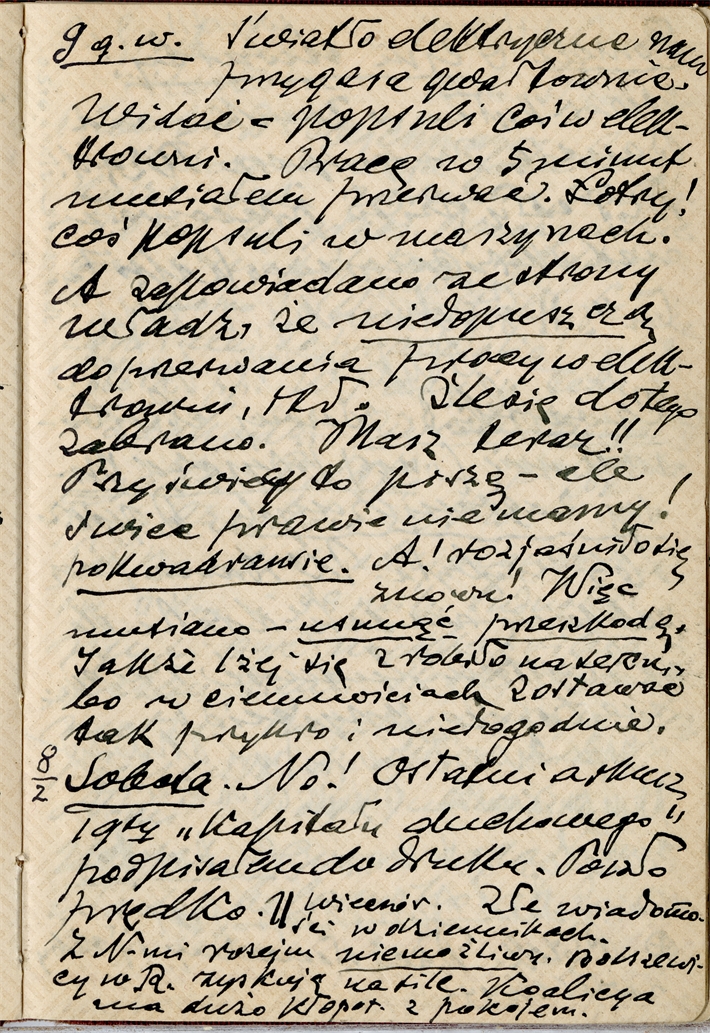 9 g. w. Światło elektryczne nam
przygasa gwałtownie.
Widać = popsuli coś w elek-
trowni. Pracę w 5 minut
musiałem przerwać. Łotry!
coś popsuli w maszynach.
A zapowiadano ze strony
władz, że niedopuszczą
do przerwania pracy w elek-
trowni, itd. Źle się do tego
zabrano. Masz teraz!!
Przy świecy to piszę – ale
świec prawie nie mamy!
po kwadransie. A! rozjaśniło się
znowu! Więc
musiano – usunąć przeszkodę.
Jakże lżej się zrobiło na sercu,
bo w ciemnościach zostawać
tak przykro i niedogodnie.
8/2 Sobota. No! Ostatni arkusz
19ty „Kapitału duchowego"
podpisałem do druku. Poszło
prędko. || wieczór. Złe wiadomo-
ści w dziennikach.
Z N-mi rozejm niemożliwy. Bolszewi-
cy w R. zyskują na sile. Koalicya
ma dużo kłopot. z pokojem.